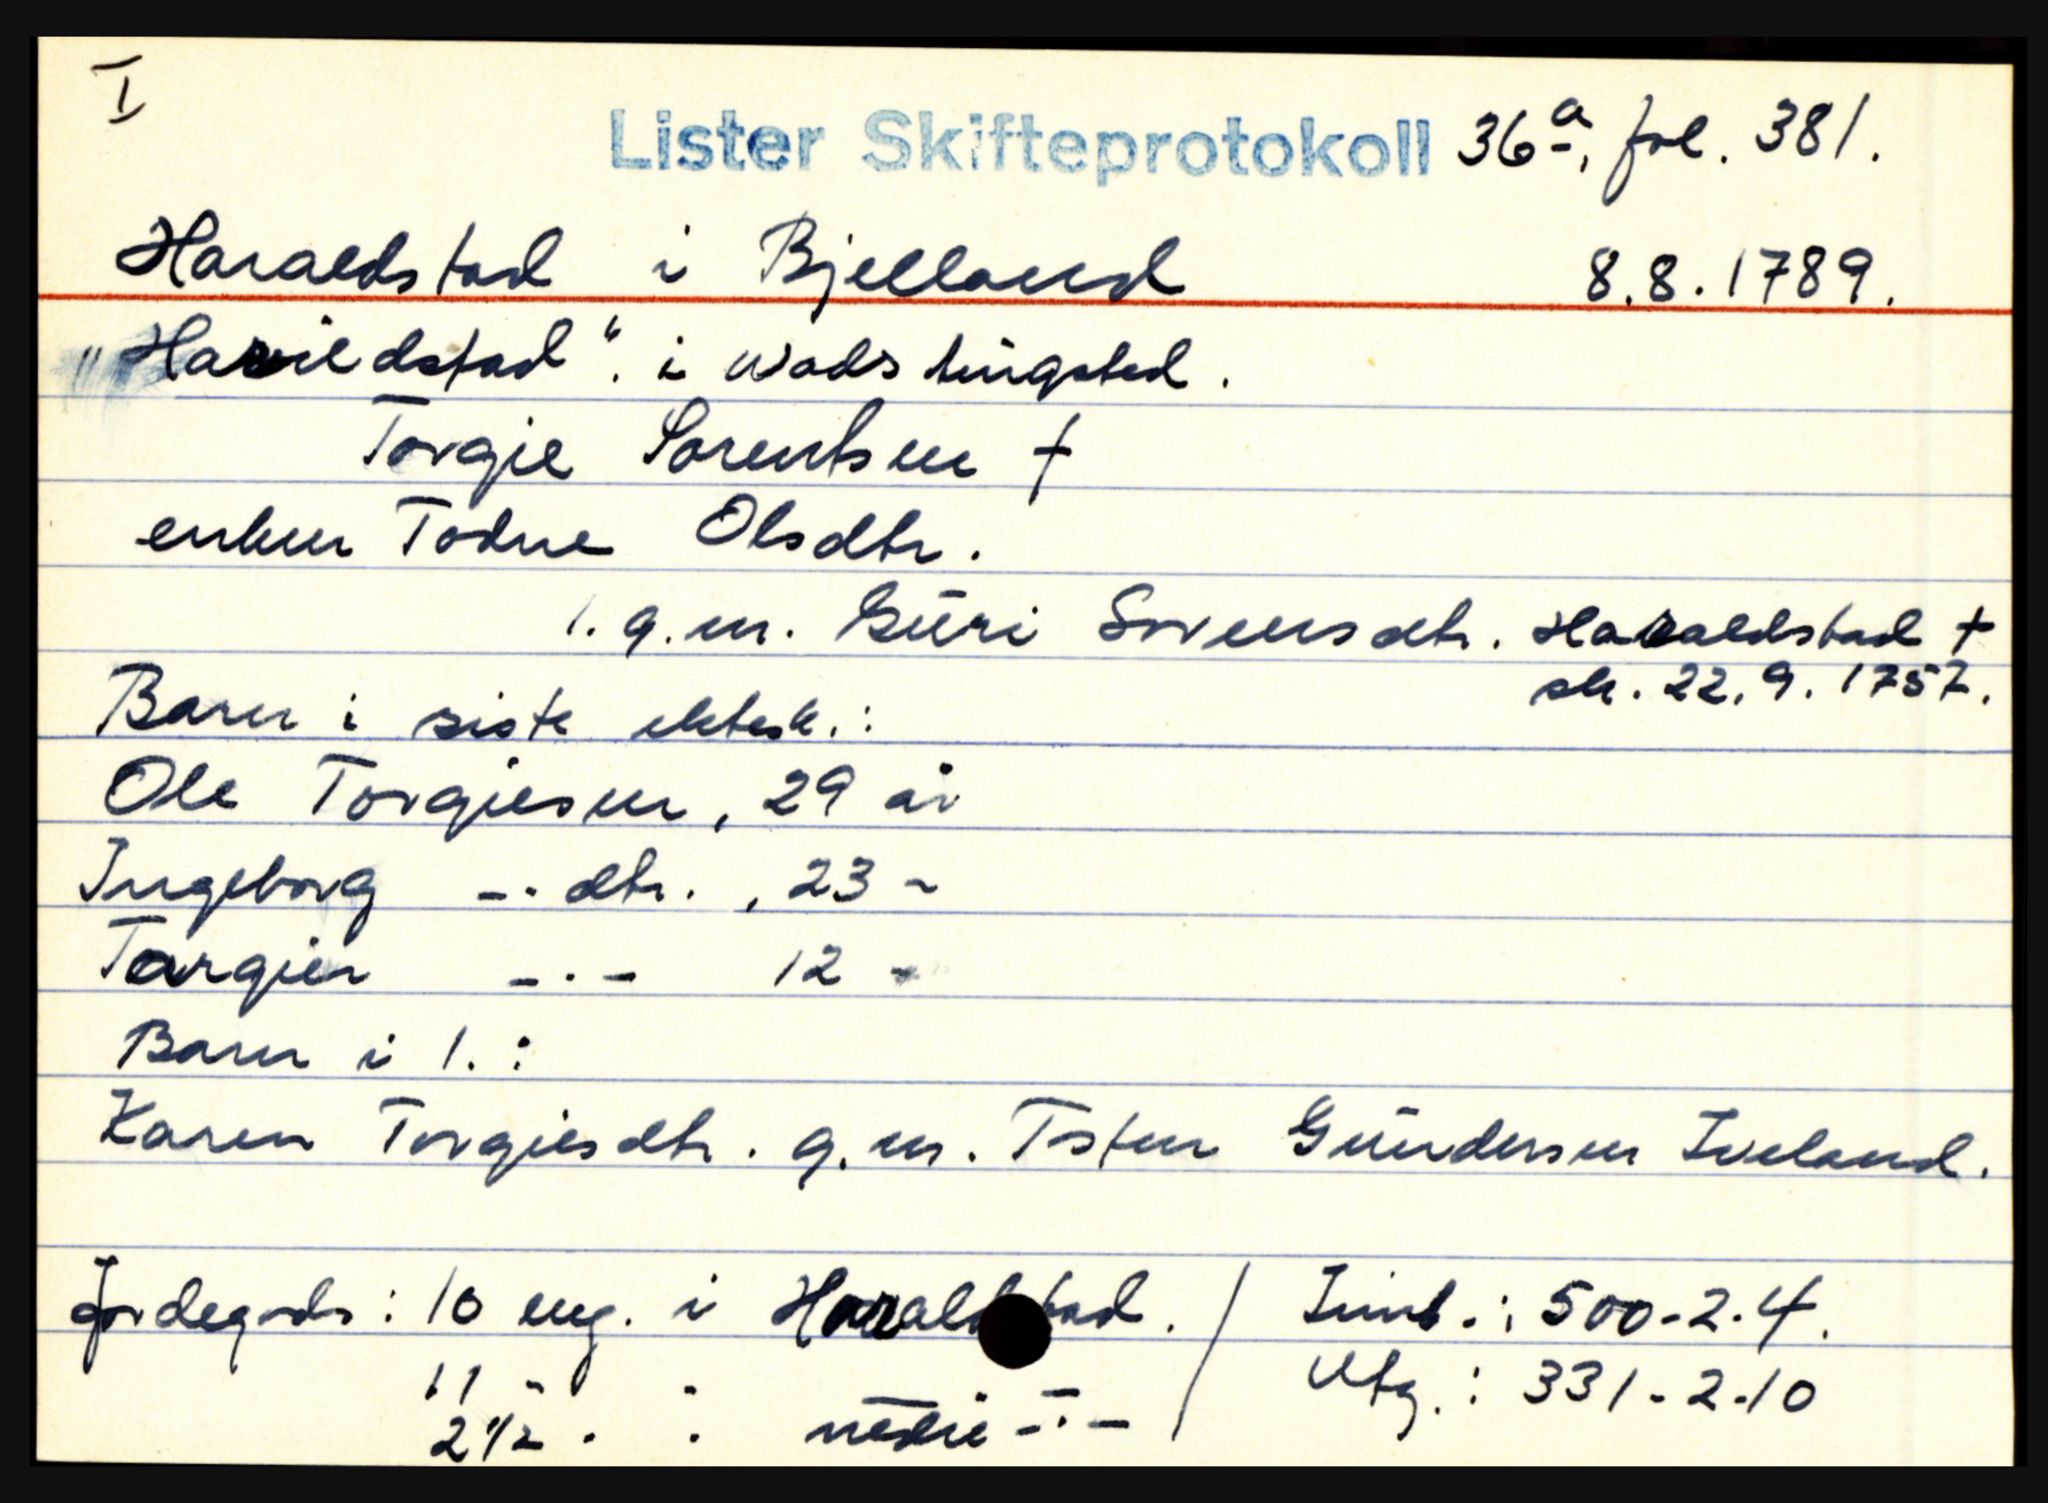 I
Lister Skifteprotokoll 36a, fol. 381.
Haraldstad i Bjelland 8.8.1789.
"Harildstad". i wads tingsted.
Torgie Sorentsen †
enken Todne Olsdtr.
1. g.m. Gŭri Sorensdtr. Haraldstad †
sk. 22.9.1757.
Barn i siste ektesk.:
Ole Torgiesen, 29 år
Ingeborg -"- dtr. , 23 -
Targier -"- 12 -
Barn i 1. :
Karen Torgiesdtr. g.m. Tosten Gŭndersen Iveland.
Jordegods: 10 eng. i Haraldstad. / Innt.: 500-2-4.
11 - " -
Utg.: 331-2-10
2 1/2 " " nedre -"-